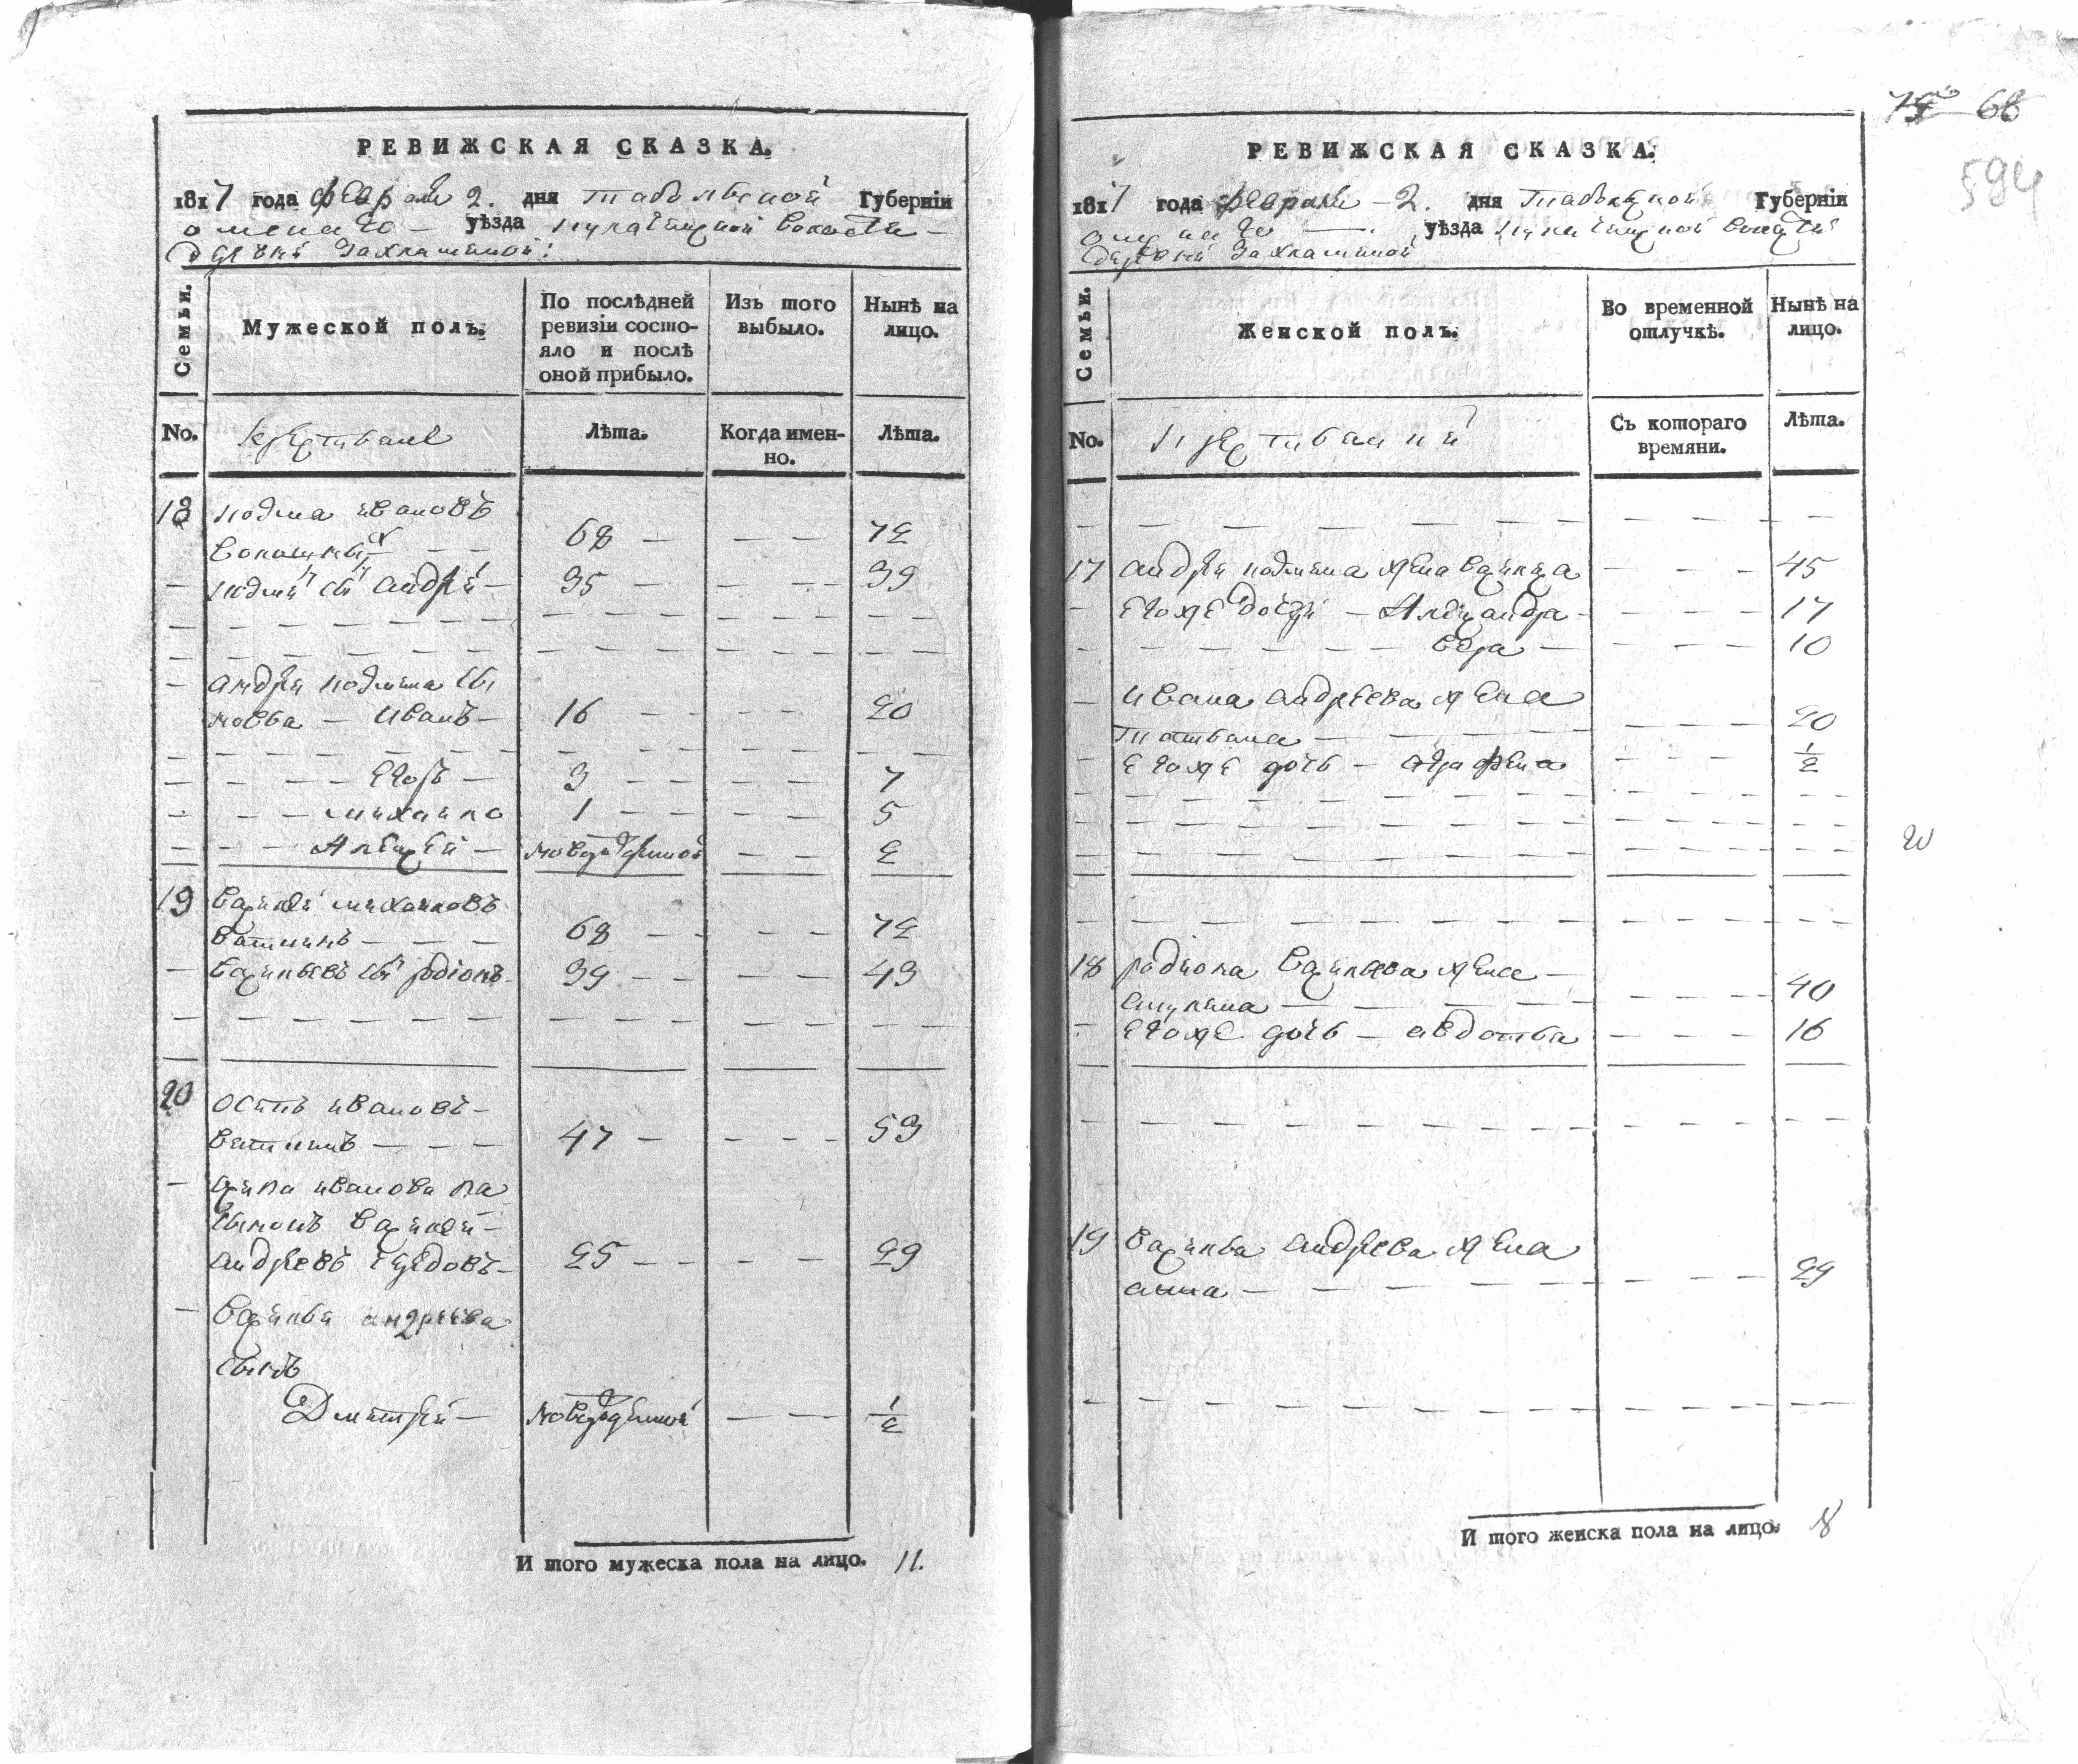 РЕВИЖСКАЯ СКАЗКА.
1817 года февраля 2. дня тобольской Губерніи
омскаго уѣзда волости
деревни Захламиной:
Семьи.
Мужеской полъ.
По послѣдней ревизіи состо-
яло и послѣ
оной прибыло.
Изъ того
выбыло.
Нынѣ на
лицо.
No.
крестьяне
Лѣта.
Когда имен-
но.
Лѣта.
18 козма ивановъ
68 — — — 72
козмы сынъ андрей — 35 — — — 39
андрея козмина сы
новья — иванъ — 16 — — — 20
— — — егоръ — 3 — — — 7
— — — михайло 1 — — — 5
— — — Алексей — новорожденной — — 2
19 василей михайловъ
ватинъ — — — 68 — — — 72
— васильевъ сынъ родіонъ 39 — — — 43
20 осипъ ивановъ —
ватинъ — — — 47 — — — 53
— осипа иванова па
сынокъ василей —
андреевъ 25 — — — 29
— василья андреева
сынъ
Дмитрей — новорожденной — — 1/2
И того мужеска пола на лицо. 11.
79 68
594
РЕВИЖСКАЯ СКАЗКА.
1817 года февраля 2. дня тобольской Губерніи
омскаго уѣзда волости
деревни Захламиной
Семьи.
Женской полъ.
Во временной
отлучкѣ.
Нынѣ на
лицо.
No.
крестьянки
Съ котораго
времяни.
Лѣта.
17 андрея козмина жена васлиса — — — 45
— егоже дочери — Александра — — — 17
— — — вера — — — 10
— ивана андреева жена
татьяна — — — 20
— егоже дочь — аграфена — — — 1/2
18 родиона васильева жена —
акулина — — — 40
— егоже дочь — авдотья — — — 16
19 василья андреева жена
анна — — — 29
И того женска пола на лицо. 8